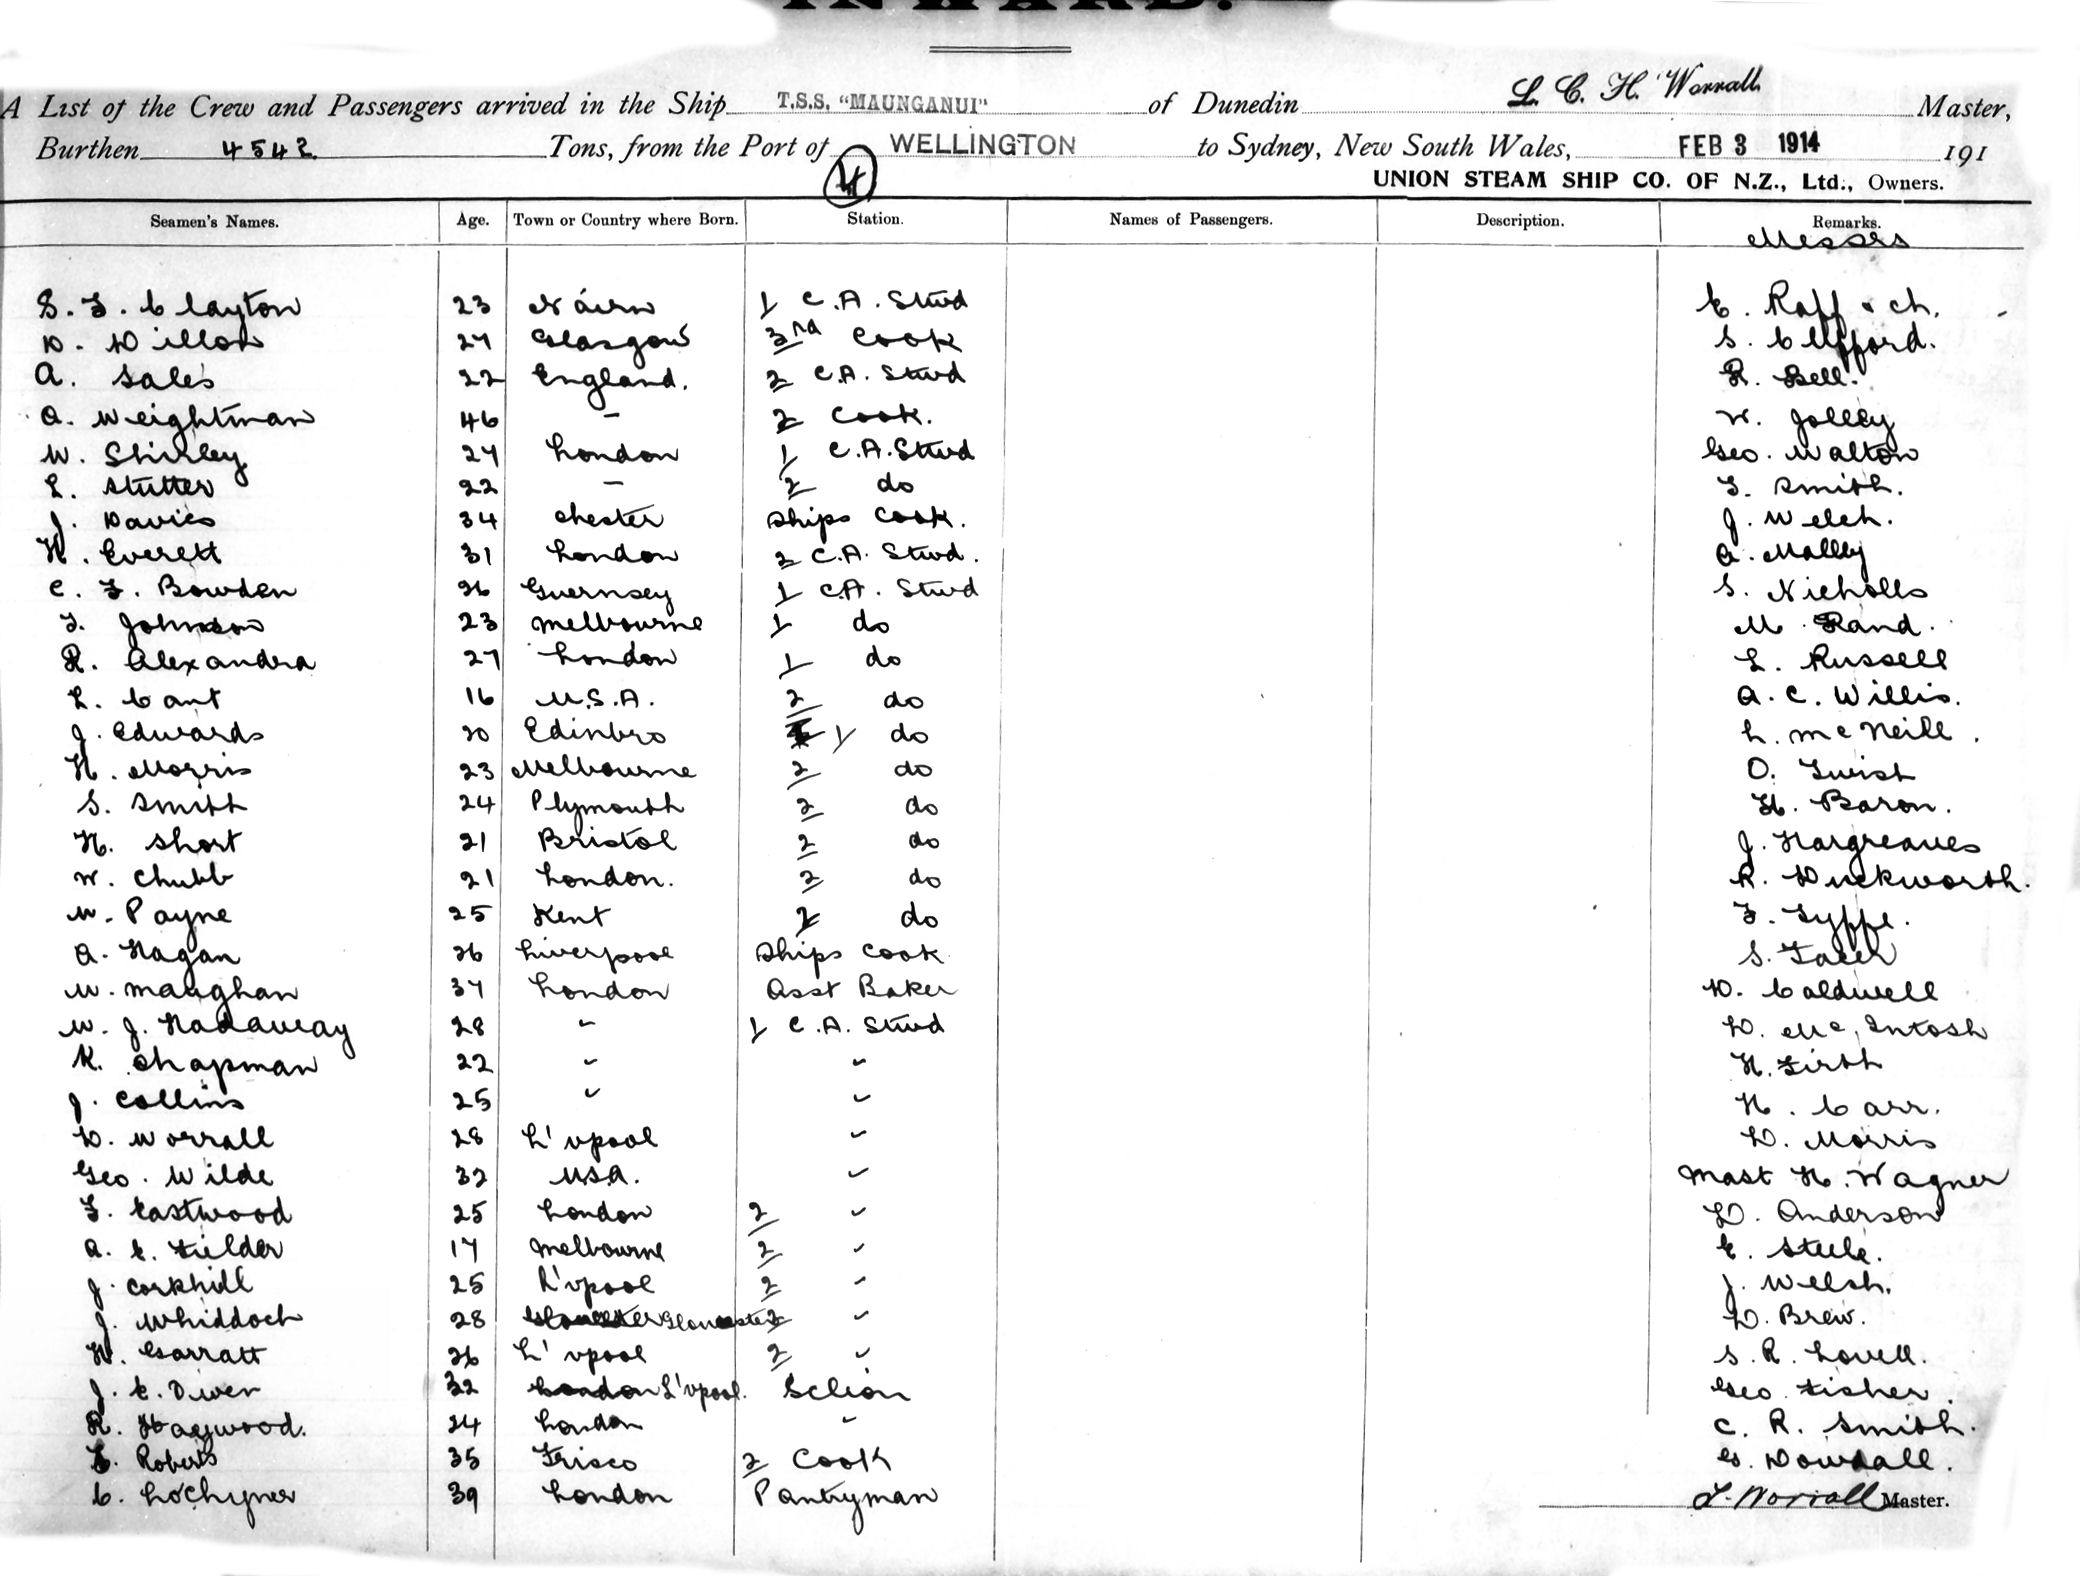 INWARD.
A List of the Crew and Passengers arrived in the Ship T.S.S. "MAUNGANUI" of Dunedin L. C. H. Worrall Master,
Burthen 4542 Tons, from the Port of WELLINGTON to Sydney, New South Wales, FEB 3 1914 191
4 UNION STEAM SHIP CO. OF N.Z., Ltd., Owners.
Seamen's Names. Age. Town or Country where Born. Station. Names of Passengers. Description. Remarks.
Messrs
S. F. Clayton 23 Nairn 1 C.A. Stwd E. Raff & ch.
D. Dillon 27 Glasgow 3rd Cook S. Clifford.
A. Sales 22 England. 2 C.A. Stwd R. Bell.
A. Weightman 46 - 2 Cook. W. Jolley
W. Shirley 27 London 1 C.A. Stwd Geo. Walton
L. Stutter 22 - 2 do F. Smith.
J. Davies 34 Chester Ships Cook. J. Welch.
H. Everett 31 London 2 C.A. Stwd. A. Malley
C. F. Bowden 26 Guernsey 1 C.A. Stwd S. Nicholls
F. Johnson 23 Melbourne 1 do M. Rand.
R. Alexandra 27 London 1 do L. Russell
L. Cant 16 U.S.A. 2 do A. C. Willis.
J. Edwards 20 Edinbro 1 do L. McNeill.
H. Morris 23 Melbourne 2 do O. Twist
S. Smith 24 Plymouth 2 do H. Baron.
H. Short 21 Bristol 2 do J. Hargreaves
W. Chubb 21 London. 2 do R. Duckworth.
W. Payne 25 Kent 2 do F. Fyffe.
A. Hagan 26 Liverpool Ships Cook S. Facer
W. Maughan 37 London Asst Baker D. Caldwell
W. J. Hadaway 28 " 1 C.A. Stwd D. McIntosh
K. Chapman 22 " " H. Firth
J. Collins 25 " " H. Carr.
D. Worrall 28 L'vpool " D. Morris
Geo. Wilde 32 USA. " Mast H. Wagner
F. Eastwood 25 London 2 " D. Anderson
A. E. Fielder 17 Melbourne 2 " E. Steele.
J. Corkhill 25 L'vpool 2 " J. Welsh.
J. Whiddoch 28 Gloucester Gloucester 2 " D. Brew.
H. Garratt 26 L'vpool 2 " S. R. Lovell.
J. E. Owen 32 London L'vpool. Sclion Geo Fisher.
R. Haywood. 24 London " C. R. Smith.
Roberts 35 Frisco 2 Cook G. Dowdall.
C. Lochyner 39 London Pantryman
L. Worrall Master.